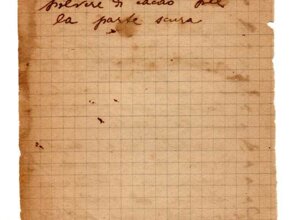 polvere di cacao per
la parte scura